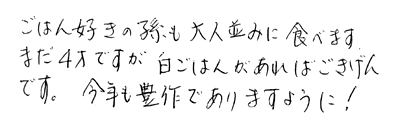 ごはん好きの孫も大人並みに食べます
まだ4才ですが白ごはんがあればごきげん
です。今年も豊作でありますように!